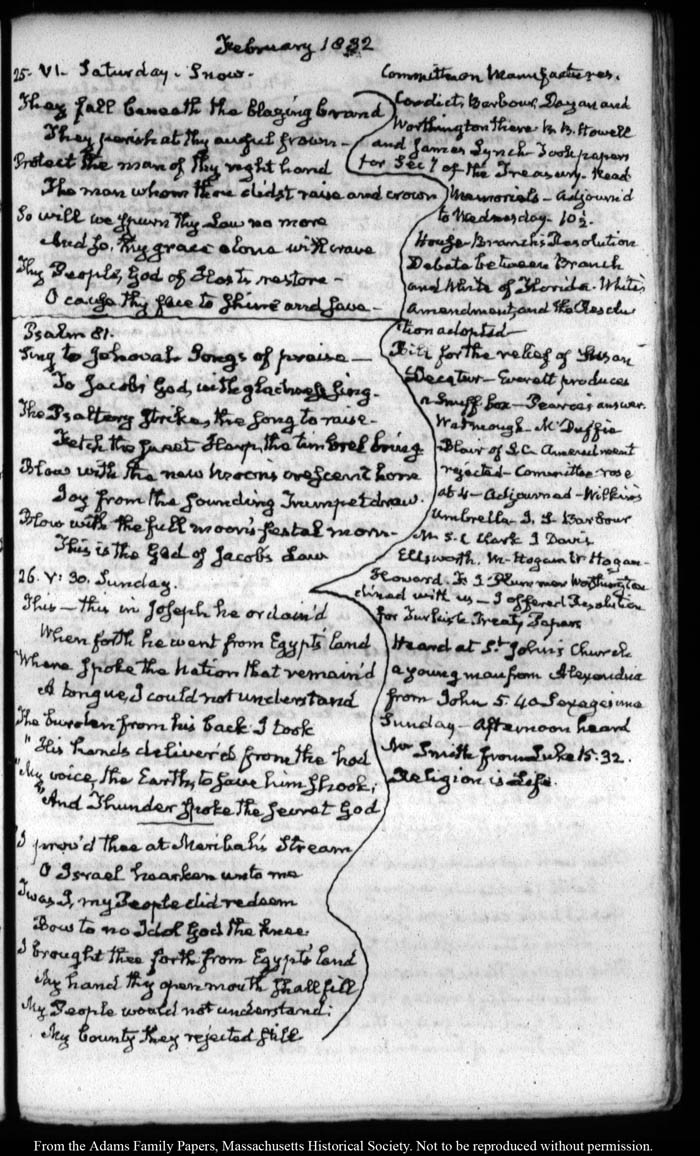 February 1832
25. VI. Saturday. Snow.
They fall beneath the blazing brand
They perish at thy awful frown—
Protect the man of thy right hand
The man whom thou didst raise and crown
So will we spurn thy Law no more
And so, thy grace alone will crave
Thy People, God of Hosts restore—
O cause thy face to shine and save—
Psalm 81.
Sing to Jehovah Songs of praise—
To Jacobs God, with gladness sing.
The Psaltery strike, the song to raise.
Fetch the sweet Harp, the timbrel bring
Blow with the new moon's crescent horn
Joy from the sounding Trumpet draw.
Blow with the full moon's festal morn
This is the God of Jacob's Law
26. V: 30. Sunday.
This—this in Joseph he ordain'd
When forth he went from Egypts' land
Where spoke the Nation that remain'd
A tongue, I could not understand
The burden from his back I took
"His hands deliver'd from the hod
"My voice, the Earth, to save him shook;
"And Thunder spoke the secret God
I prov'd thee at Meribah's Stream
O Israel hearken unto me
Twas I, my People did redeem
Bow to no Idol God the knee
I brought thee forth from Egypts' land
My hand thy open mouth shall fill
My People would not understand:
My bounty they rejected still
Committee on Manufactures.
Condict, Barbour, Dayan and
Worthington there. B. B. Howell
and James Lynch. Took papers
for Secy of the Treasury. Read
Memorials—Adjourn'd
to Wednesday. 10½.
House. Branch's Resolution
Debate between Branch
and White of Florida. White's
amendment, and the Resolu
tion adopted—
Bill for the relief of Susan
Decatur—Everett produces
a Snuff box—Pearce's answer.
Watmough—McDuffie
Blair of S.C. Amendment
rejected—Committee rose
at 4—Adjourned—Wilkins's
Umbrella. J. S. Barbour
Mr S. C Clark J Davis
Ellsworth. M. Hogan W Hogan—
Howard. F. J Plummer Worthington
dined with us—I offered Resolution
for Turkish Treaty Papers
Heard at St. John's Church
a young man from Alexandria
from John 5. 40 Sexagesima
Sunday—Afternoon heard
Mr Smith from Luke 15. 32.
Religion is Life.
From the Adams Family Papers, Massachusetts Historical Society. Not to be reproduced without permission.